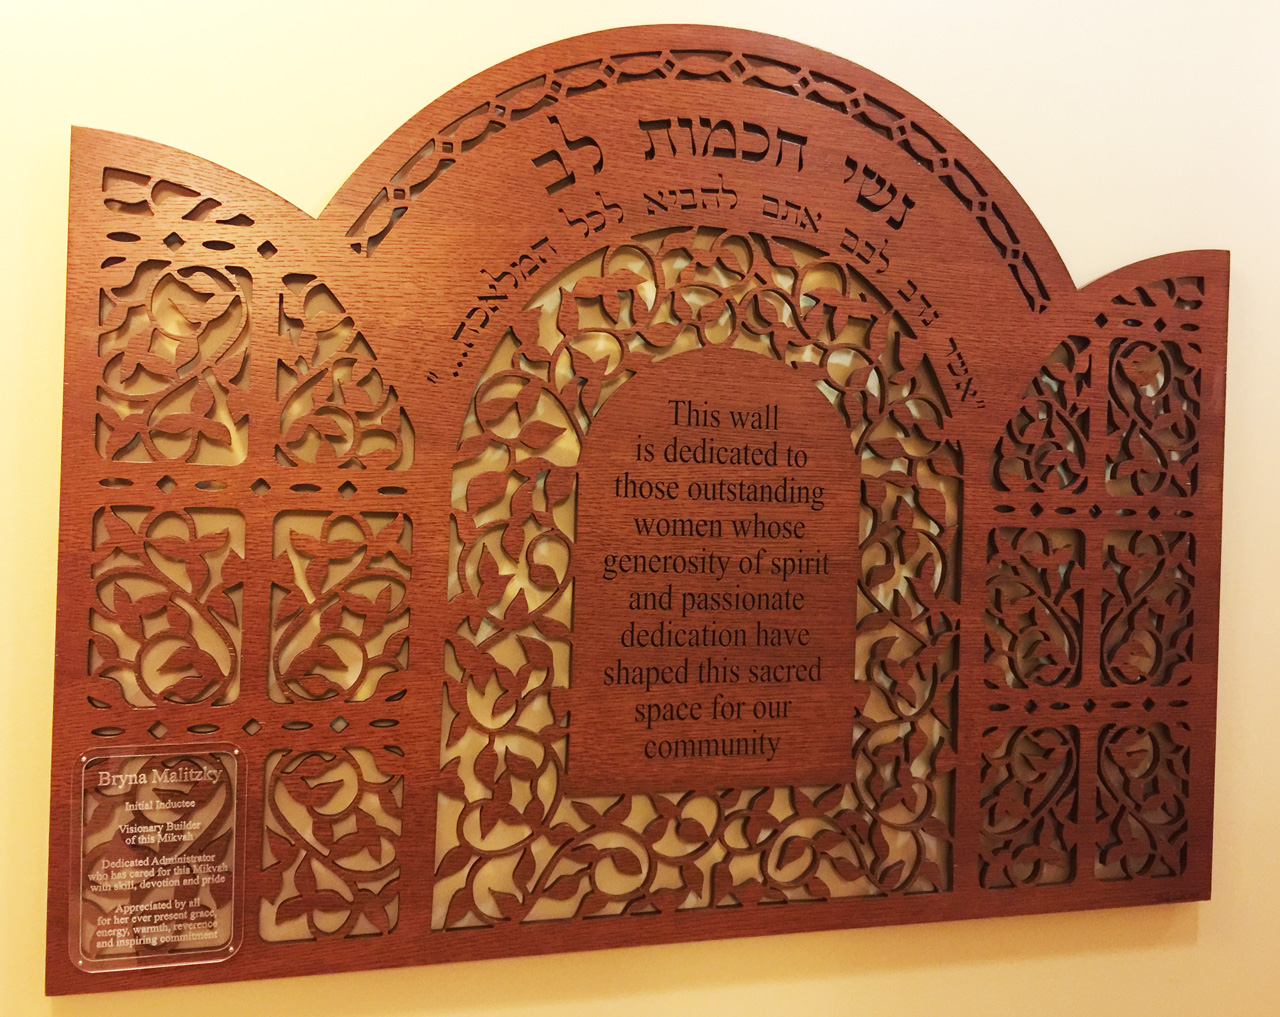 נשי חכמות לב
"אשר נדב לבם אתם להביא לכל המלאכה..."
This wall
is dedicated to
those outstanding
women whose
generosity of spirit
and passionate
dedication have
shaped this sacred
space for our
community
Bryna Malitzky
Initial Inductee
Visionary Builder
of this Mikvah
Dedicated Administrator
who has cared for this Mikvah
with skill, devotion and pride
Appreciated by all
for her ever present grace,
energy, warmth, reverence
and inspiring commitment